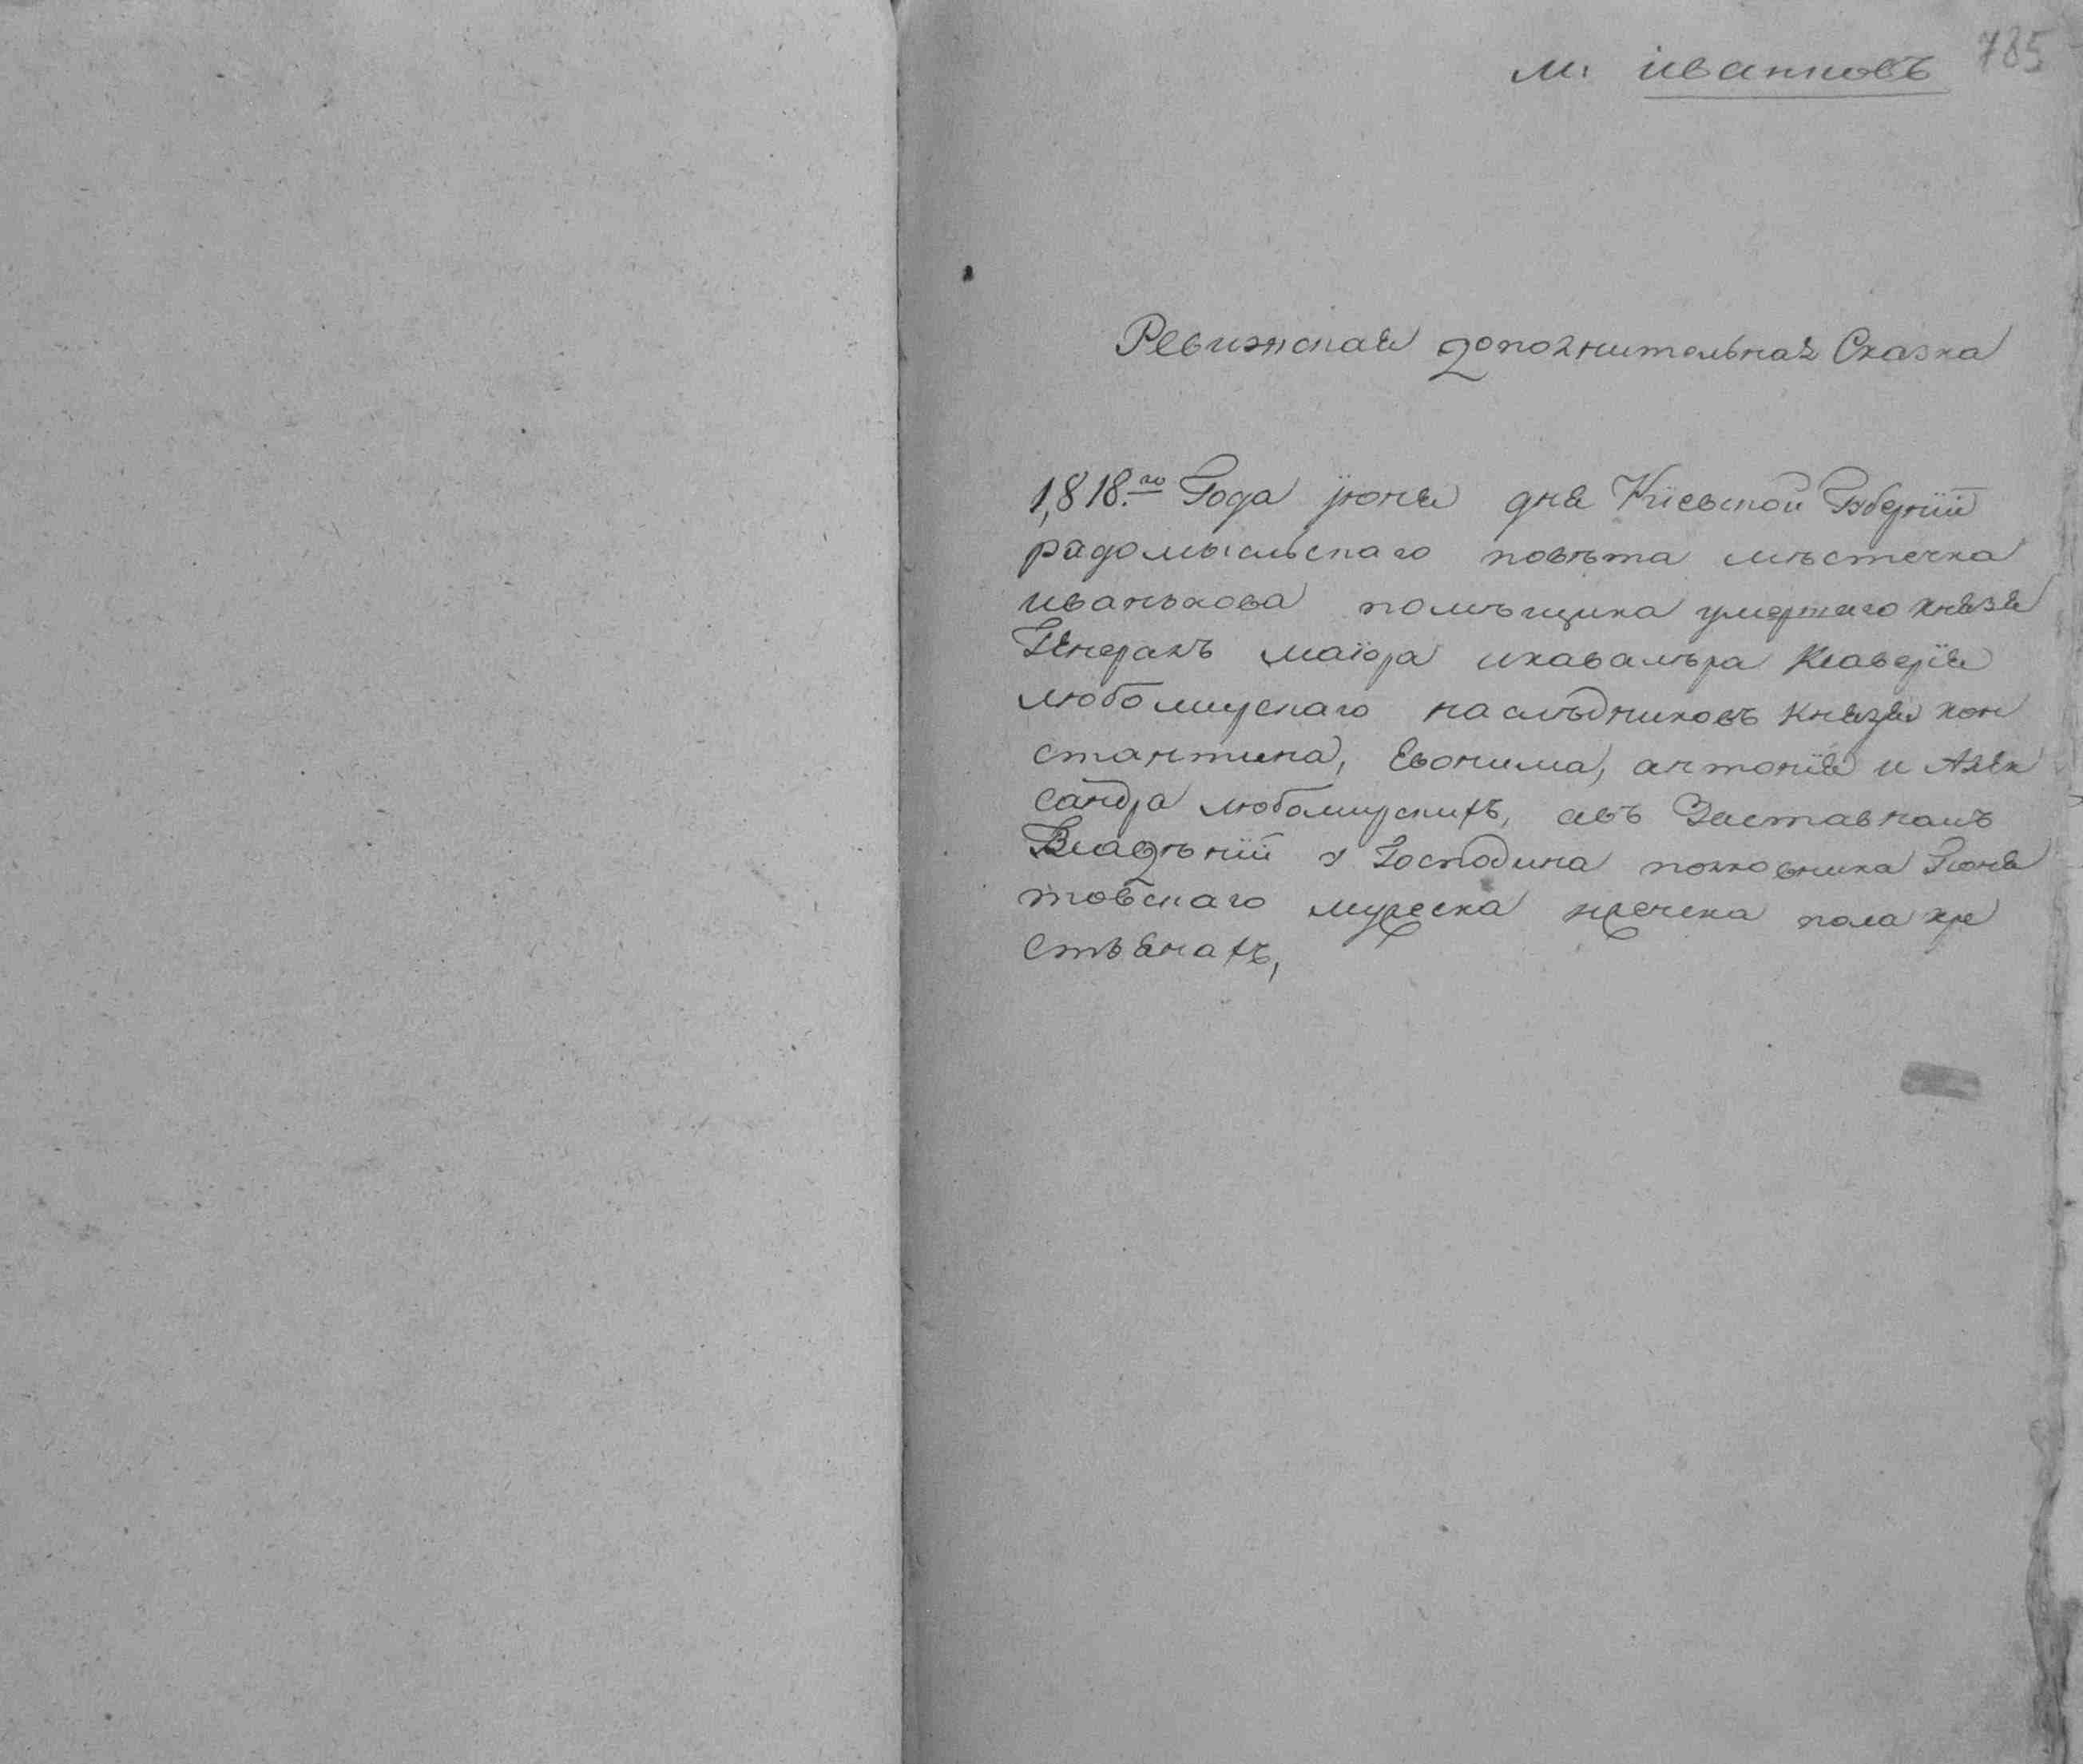 785
м. иванковъ
Ревижская дополнительная Сказка
1,818.го Года июня дня Киевской Губернїи
радомысльскаго повѣта мѣстечка
иванькова помѣщика умершаго князя
Генералъ маїора икавалѣра Ксаверїя
любомирскаго наслѣдниковъ князя кон
стантина, Евонима, антонїя и Алек
сандра любомирскихъ, авъ Заставномъ
Владѣнїи у Господина полковника Гоня
товскаго мужеска иженска пола кре
стьянахъ,